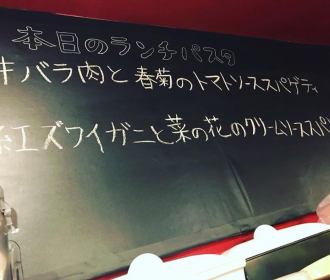 本日のランチパスタ
牛バラ肉と春菊のトマトソーススパゲティ
紅ズワイガニと菜の花のクリームソーススパ